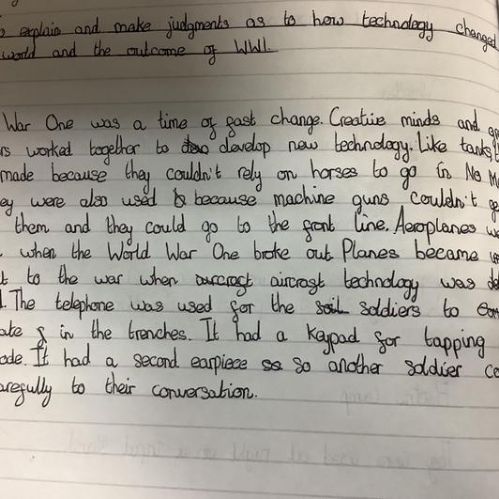 explain and make judgments as to how technology changed
world and the outcome of WW1.
War One was a time of fast change. Creative minds and
worked together to develop new technology. Like tanks!
made because they couldn't rely on horses to go in No
were also used because machine guns couldn't
them and they could go to the front line. Aeroplanes
when the World War One broke out. Planes became
to the war when aircraft technology was
The telephone was used for the soldiers to
in the trenches. It had a keypad for tapping
It had a second earpiece so another soldier
to their conversation.